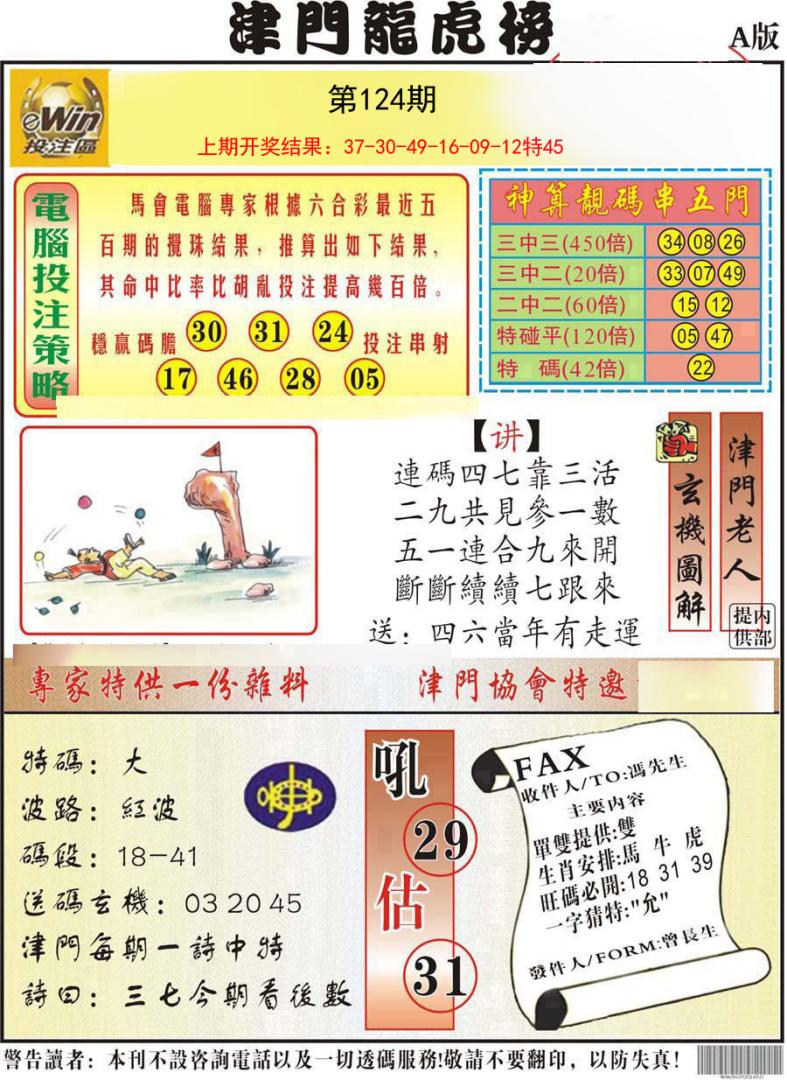 津門龍虎榜
A版
eWin
投注區
第124期
上期开奖结果：37-30-49-16-09-12特45
電腦投注策略
馬會電腦專家根據六合彩最近五
百期的攪珠結果，推算出如下結果，
其命中比率比胡亂投注提高幾百倍。
穩贏碼膽 30 31 24 投注串射
17 46 28 05
神算靚碼串五門
三中三(450倍) 34 08 26
三中二(20倍) 33 07 49
二中二(60倍) 15 12
特碰平(120倍) 05 47
特 碼(42倍) 22
【讲】
連碼四七靠三活
二九共見參一數
五一連合九來開
斷斷續續七跟來
送：四六當年有走運
玄機圖解
津門老人
內部提供
專家特供一份雜料
津門協會特邀
特碼：大
波路：紅波
碼段：18-41
送碼玄機：03 20 45
津門每期一詩中特
詩曰：三七今期看後數
吼
29
估
31
FAX
收件人/TO:馮先生
主要內容
單雙提供:雙
生肖安排:馬 牛 虎
旺碼必開:18 31 39
一字猜特:"允"
發件人/FORM:曾長生
警告讀者：本刊不設咨詢電話以及一切透碼服務!敬請不要翻印，以防失真！